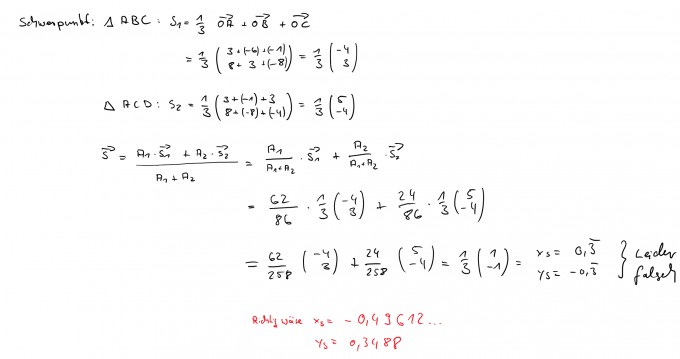 Schwerpunkt: Δ ABC: S₁ = 1/3 OA⃗ + OB⃗ + OC⃗
= 1/3 (3+(-6)+(-1) / 8+3+(-8)) = 1/3 (-4 / 3)
Δ ACD: S₂ = 1/3 (3+(-1)+3 / 8+(-8)+(-4)) = 1/3 (5 / -4)
S⃗ = (A₁·S₁⃗ + A₂·S₂⃗)/(A₁+A₂) = A₁/(A₁+A₂) · S₁⃗ + A₂/(A₁+A₂) · S₂⃗
= 62/86 · 1/3 (-4 / 3) + 24/86 · 1/3 (5 / -4)
= 62/258 (-4 / 3) + 24/258 (5 / -4) = 1/3 (1 / -1) = xs = 0,3̅ ys = -0,3̅ } Leider falsch
Richtig wäre xs = -0,49612...
ys = 0,3488